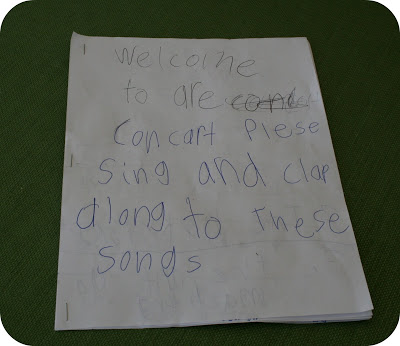 Welcome
to are
Concart Plese
sing and clap
along to These
songs